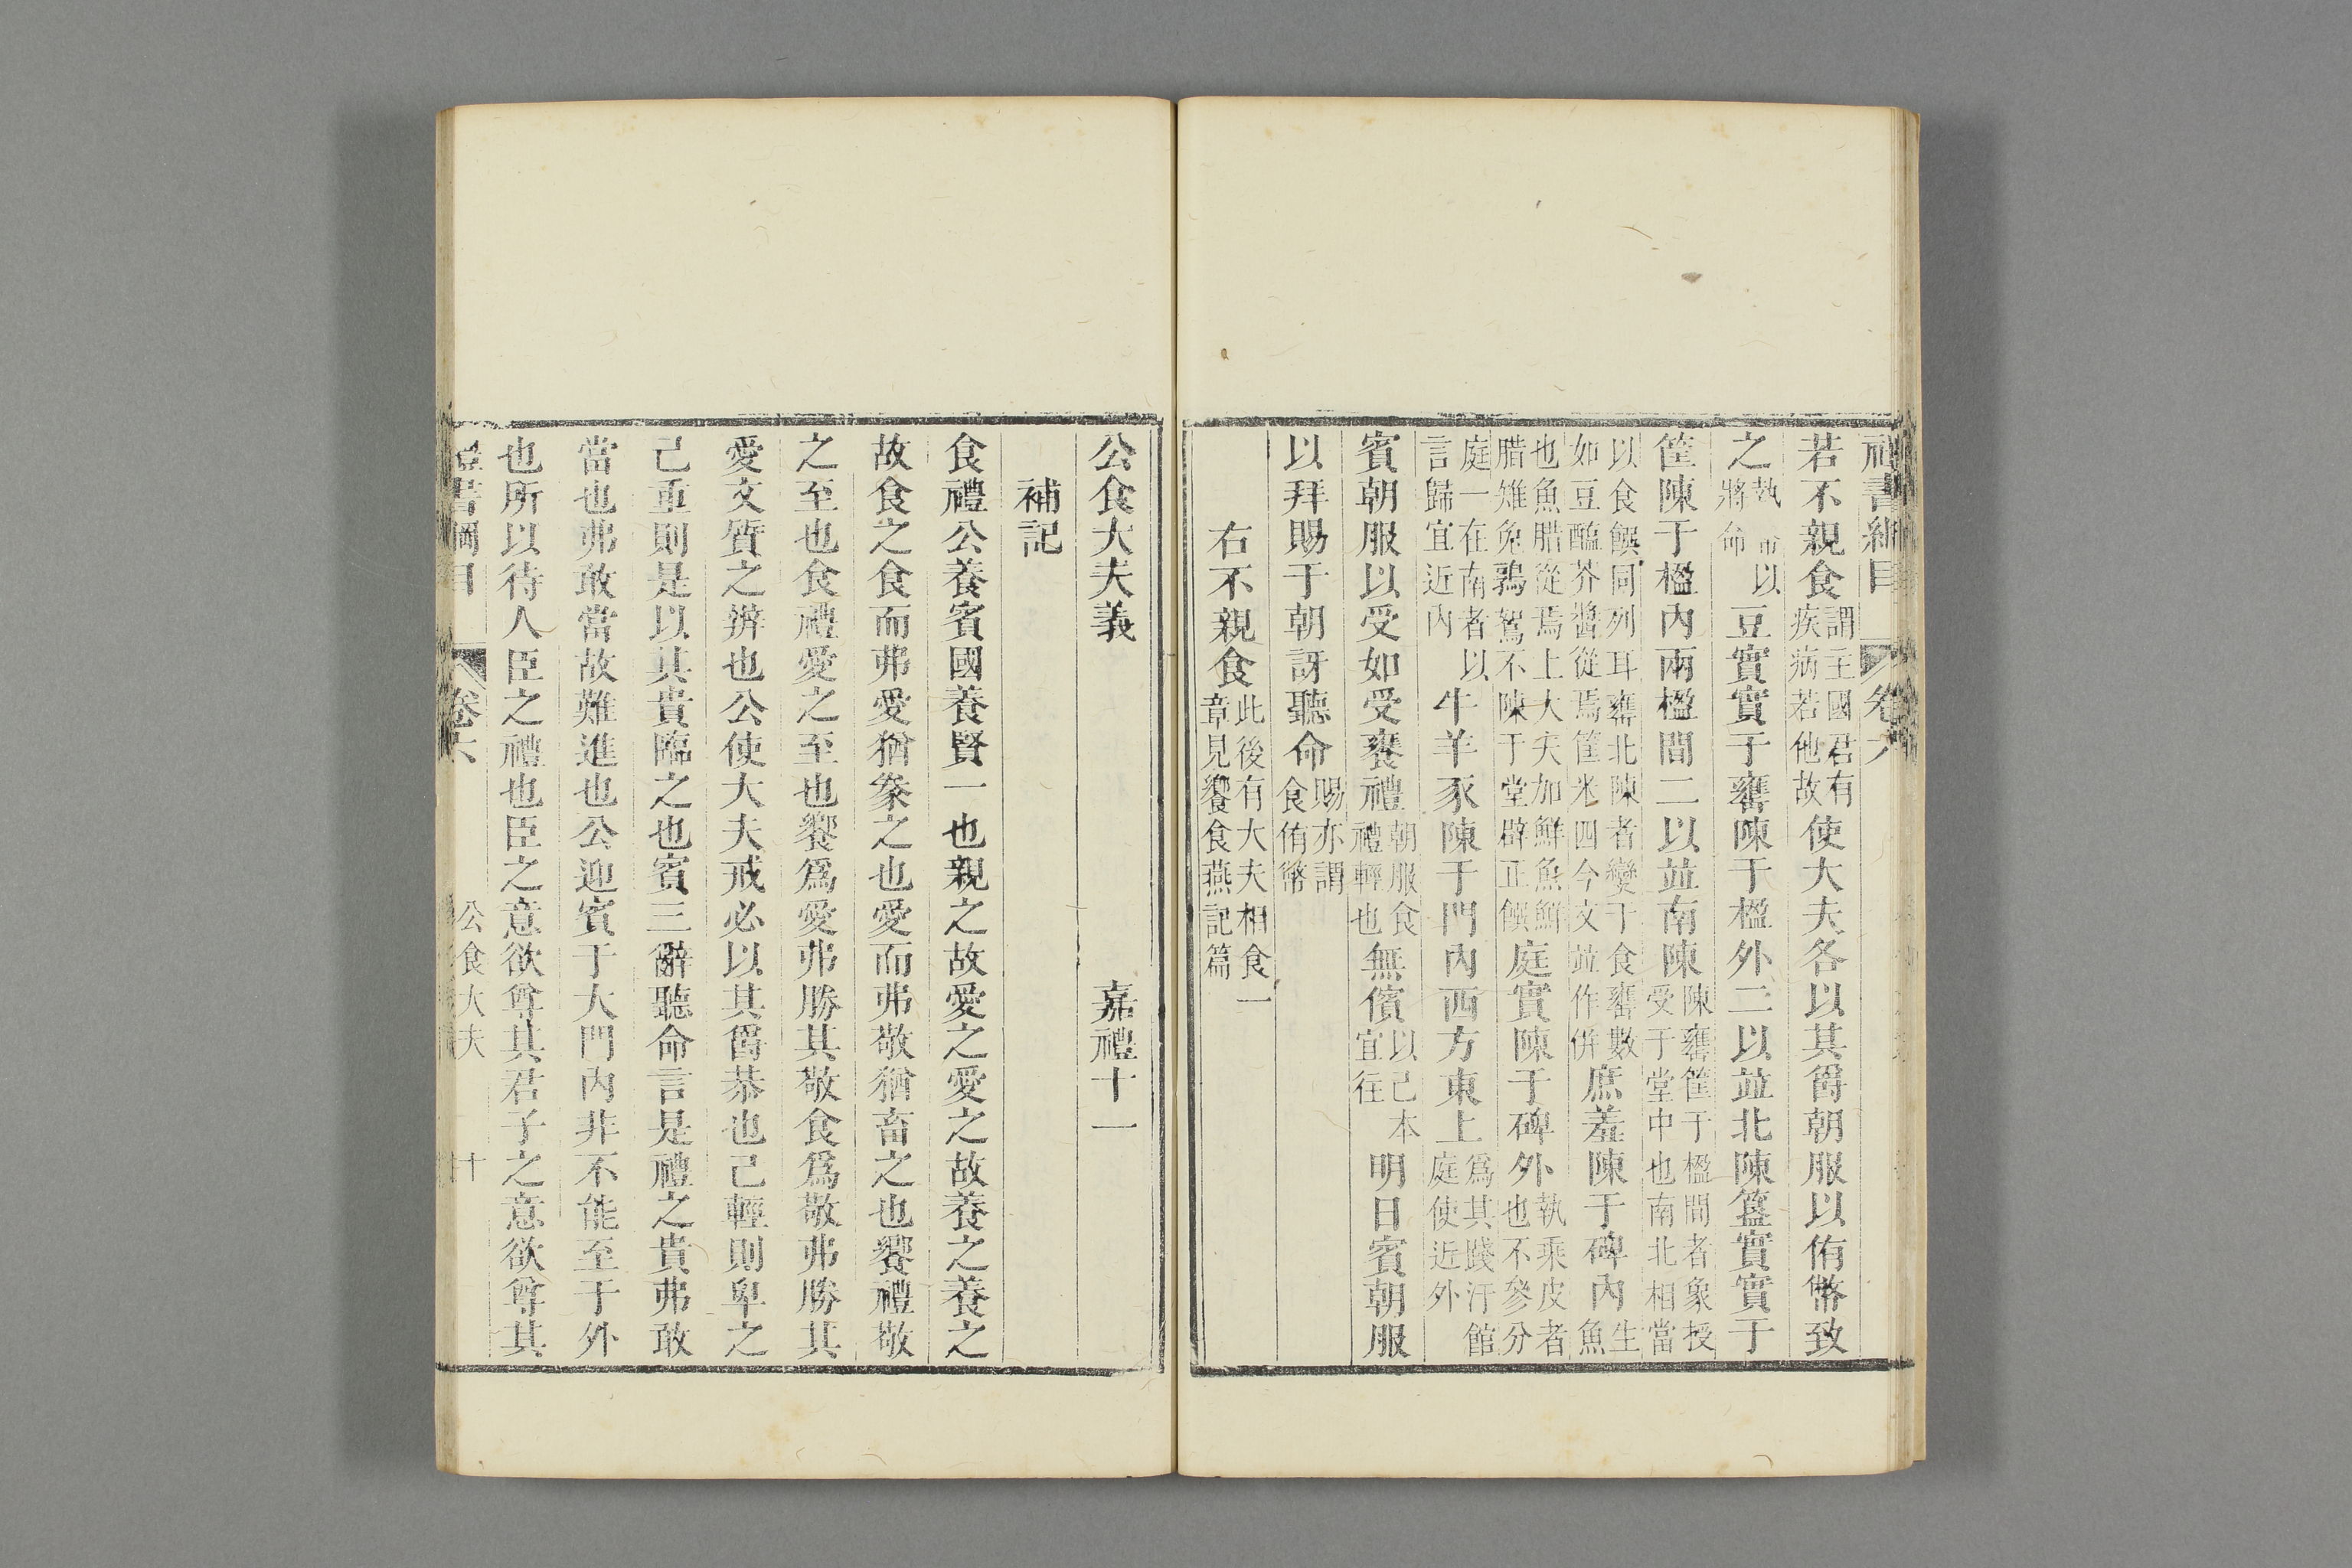 禮書綱目　卷六
若不親食謂主國君有疾病若他故使大夫各以其爵朝服以侑幣致
之執幣以將命豆實實于罋陳于楹外二以竝北陳簋實實于
筐陳于楹內兩楹間二以竝南陳陳罋筐于楹間者象授受于堂中也南北相當
以食饌同列耳罋北陳者變于食罋數如豆醢芥醬從焉筐米四今文竝作併庶羞陳于碑內生魚
也魚腊從焉上大夫加鮮魚鮮腊雉兔鶉鴽不陳于堂辟正饌庭實陳于碑外執乘皮者也不參分
庭一在南者以言歸宜近內牛羊豕陳于門內西方東上爲其踐汙館庭使近外
賓朝服以受如受饔禮朝服食禮輕也無儐以己本宜往明日賓朝服
以拜賜于朝訝聽命賜亦謂食侑幣
右不親食此後有大夫相食一章見饗食燕記篇
公食大夫義　嘉禮十一
補記
食禮公養賓國養賢一也親之故愛之愛之故養之養之
故食之食而弗愛猶豢之也愛而弗敬猶畜之也饗禮敬
之至也食禮愛之至也饗爲愛弗勝其敬食爲敬弗勝其
愛文質之辨也公使大夫戒必以其爵恭也己輕則卑之
己重則是以其貴臨之也賓三辭聽命言是禮之貴弗敢
當也弗敢當故難進也公迎賓于大門內非不能至于外
也所以待人臣之禮也臣之意欲尊其君子之意欲尊其
禮書綱目　卷六　公食大夫　十